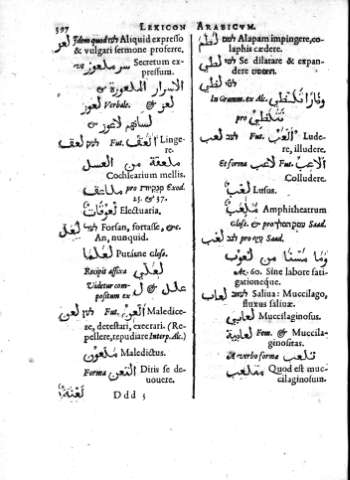 397 LEXICON ARABICVM.
لعز Idem quod لغز Aliquid expresso
& vulgari sermone proferre,
سر ملعوز Secretum ex-
pressum.
الاسرار الملعوزة &
لعز & Verbale. لعوز
لعق Fut. العق Linge-
re.
ملعقة من العسل
Cochlearium mellis.
ملاعق pro Exod.
25. & 37.
لعوقات Electuaria,
لعل Forsan, fortasse, &c.
An, nunquid.
لعلما Putasne Glose.
Recipit affixa لعلي
Videtur com-
positum ex ل & عل
لعن Fut. العن Maledice-
re, detestari, execrari. (Re-
pellere, repudiare Interp. Alc.)
ملعون Maledictus.
Forma التعن Diris se de-
vovere.
Ddd 3 لعنة
Alapam impingere, co-
laphis cædere.
لظي Se dilatare & expan-
dere
In Gramm. ex Alc.
pro
لعب Fut. العب Lude-
re, illudere.
Et forma لاعب Fut. الاعب
Colludere.
لعب Lusus.
ملعب Amphitheatrum
Glose. & pro Saad.
لغب pro Saad.
وما مسنا من لغوب
Ac. 60. Sine labore fati-
gationeque.
لعاب Saliva: Muccilago,
fluxus salivæ.
لعابي Muccilaginosus.
لعابية Fem. & Muccila-
ginositas.
A verbo forma تلعب
متلعب Quod est muc-
cilaginosum.